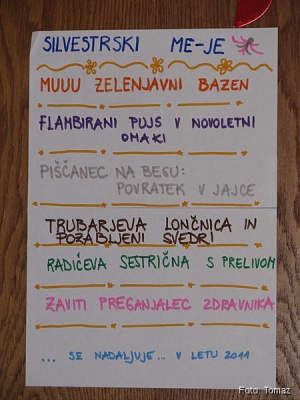 SILVESTRSKI ME-JE
MUUU ZELENJAVNI BAZEN
FLAMBIRANI PUJS V NOVOLETNI
OMAKI
PIŠČANEC NA BEGU:
POVRATEK V JAJCE
TRUBARJEVA LONČNICA IN
POZABLJENI SVEDRI
RADIČEVA SESTRIČNA S PRELIVOM
ZAVITI PREGANJALEC ZDRAVNIKA
... SE NADALJUJE... V LETU 2011
Foto: Tomaz